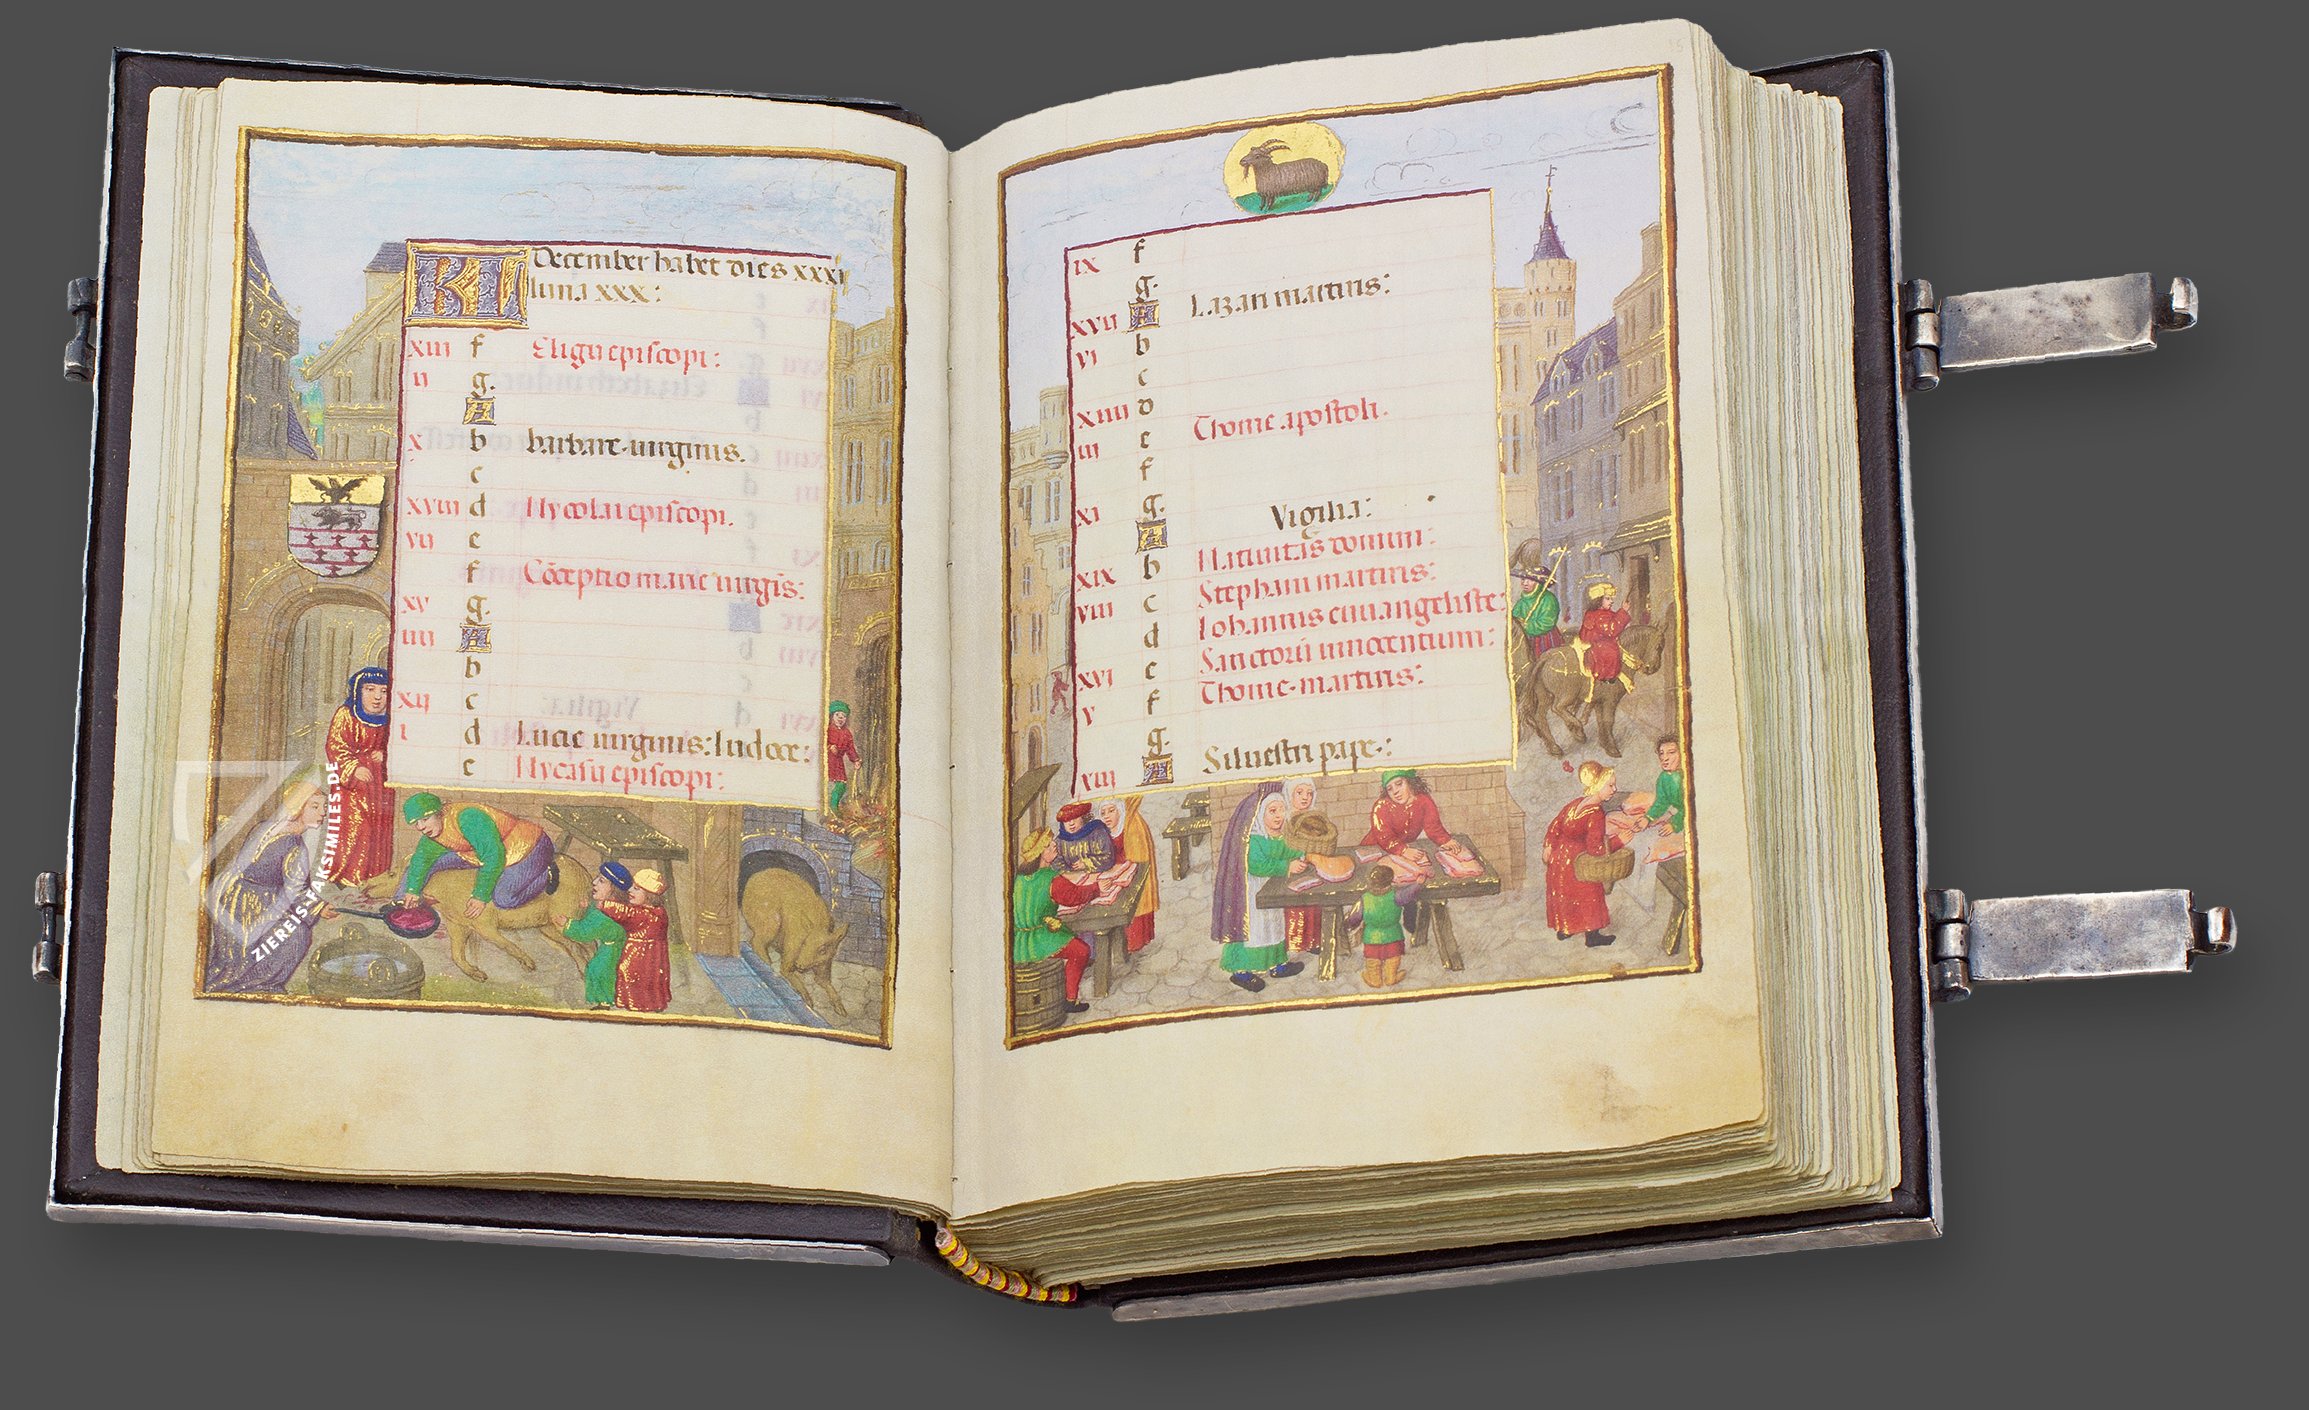 KL December habet dies xxxi
luna xxx:
xiii f Eligii episcopi:
ii g.
A
x b barbare. uirginis.
c
xviii d Nycolai episcopi.
vii e
f Cōceptio marie uirgīs:
xv g.
iiii A
b
xii c
i d Lucie uirginis: Iudoce:
e Nycasii episcopi:
ix f
g.
xvii A Lazari martiris:
vi b
c
xiiii d Thome apostoli.
iii e
f
xi g. Vigilia:
A Natiuitas domini:
xix b Stephani martiris:
viii c Iohannis euuangeliste:
d Sanctorū innocentium:
xvi e Thome martiris:
v f
g. Siluestri pape.:
xiii A
ZIEREIS-FAKSIMILES.DE